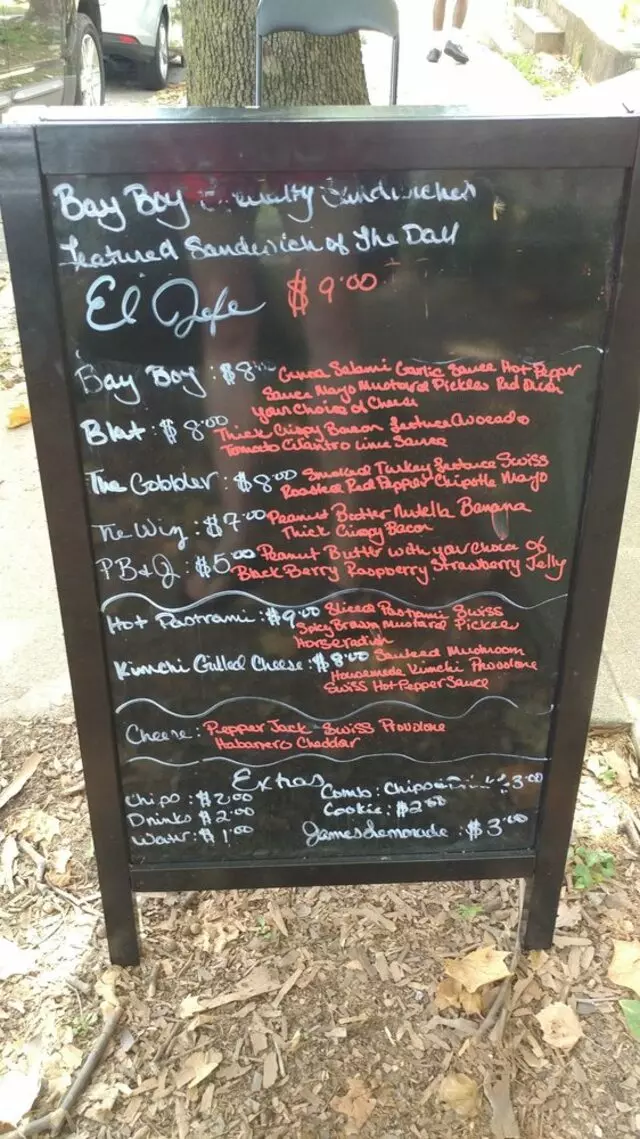 Bay Boy Specialty Sandwiches
Featured Sandwich of The Day
El Jefe $9.00
Bay Boy: $8.00 Genoa Salami Garlic Sauce Hot Pepper
Sauce Mayo Mustard Pickles Red Onion
your Choice of Cheese
Blat: $8.00 Thick Crispy Bacon Lettuce Avocado
Tomato Cilantro Lime Sauce
The Gobbler: $8.00 Smoked Turkey Lettuce Swiss
Roasted Red Pepper Chipotle Mayo
The Wiz: $7.00 Peanut Butter Nutella Banana
Thick Crispy Bacon
PB&J: $5.00 Peanut Butter with your choice of
Black Berry Raspberry Strawberry Jelly
Hot Pastrami: $9.00 Sliced Pastrami Swiss
Spicy Brown Mustard Pickle
Horseradish
Kimchi Grilled Cheese: $8.00 Sauteed Mushroom
Housemade Kimchi Provolone
Swiss Hot Pepper Sauce
Cheese: Pepper Jack Swiss Provolone
Habanero Cheddar
Extras
Chips: $2.00 Combo: Chips $3.00
Drinks $2.00 Cookie: $2.00
Water: $1.00 James Lemonade: $3.00